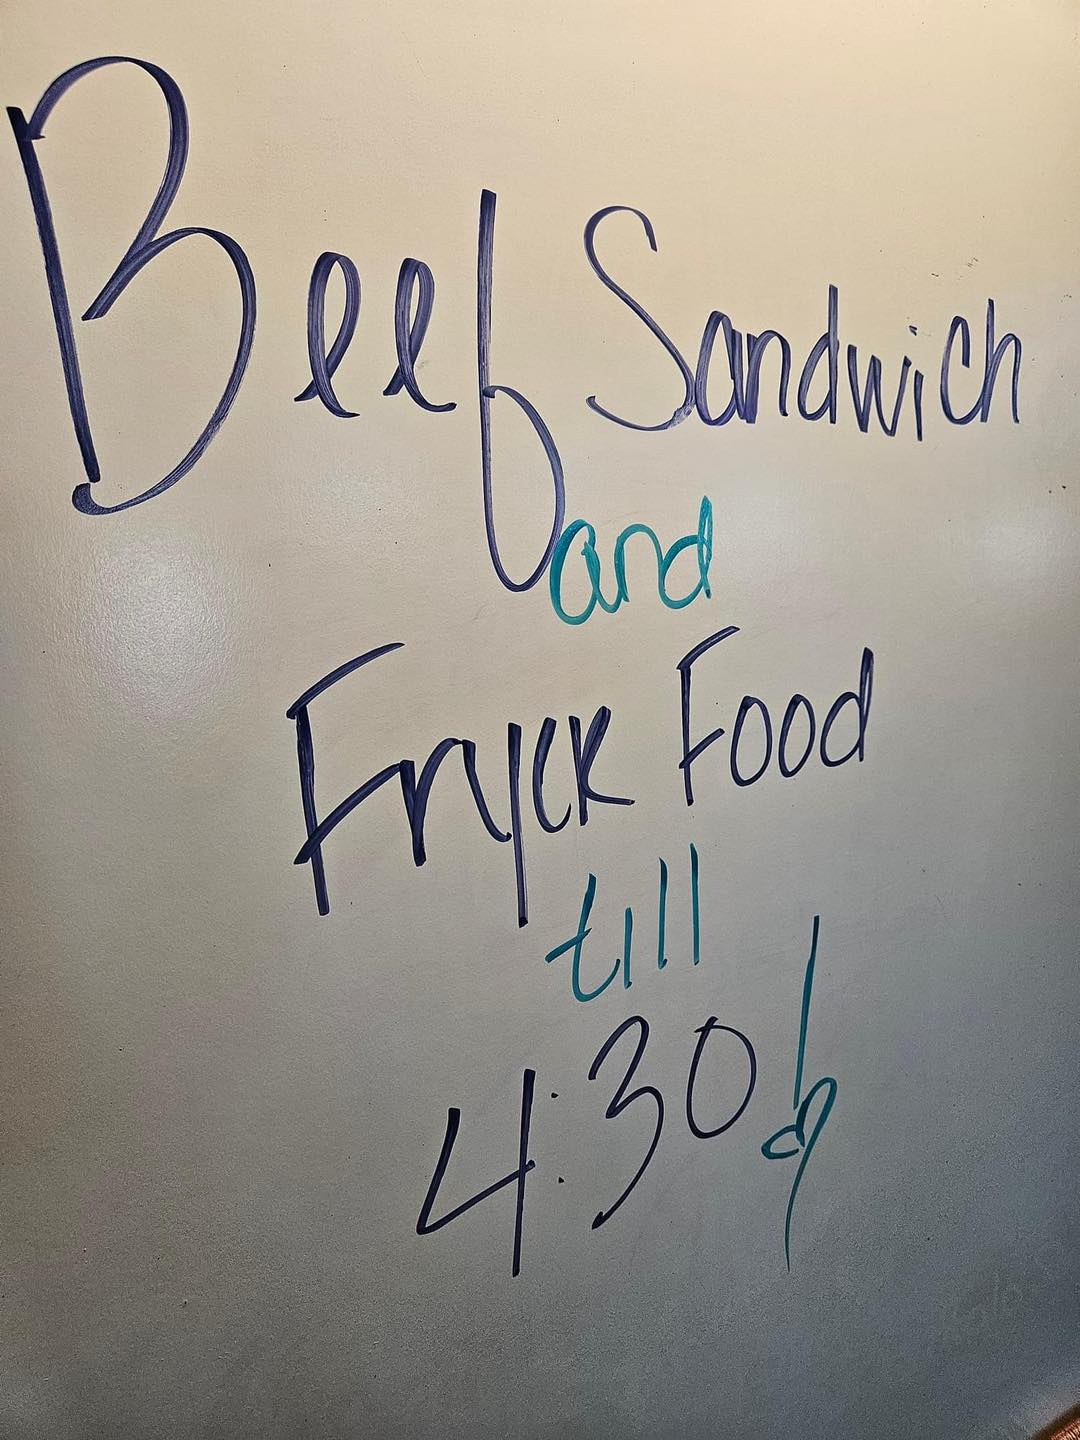 Beef Sandwich
and
Fryck Food
till
4:30!